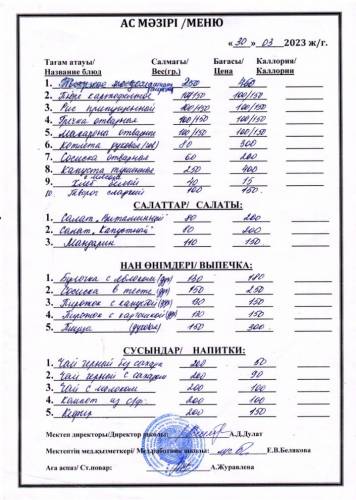 АС МӘЗІРІ /МЕНЮ
« 30 » 03 2023 ж/г.
Тағам атауы/ Салмағы/ Бағасы/ Каллория/
Название блюд Вес(гр.) Цена Каллории
1. 250 460
2. Пюре картофельное 100/150 100/150
3. Рис припущенный 100/150 100/150
4. Гречка отварная 100/150 100/150
5. Макароны отварные 100/150 100/150
6. Котлета 80 300
7. Сосиска отварная 60 200
8. Капуста тушенная с мясом 250 400
9. Хлеб белый 40 15
10. Творог сладкий 100 150
САЛАТТАР/ САЛАТЫ:
1. Салат „Витаминный" 80 200
2. Салат „Капустный" 80 200
3. Мандарин 110 150
НАН ӨНІМДЕРІ/ ВЫПЕЧКА:
1. Булочка с молоком 130 180
2. Сосиска в тесте 150 250
3. Пирожок с капустой 130 150
4. Пирожок с картошкой 130 150
5. Пицца 150 300
СУСЫНДАР/ НАПИТКИ:
1. Чай черный без сахара 200 50
2. Чай черный с сахаром 200 90
3. Чай с молоком 200 100
4. Компот из 200 100
5. Кефир 200 150
Мектеп директоры/Директор школы: А.Д.Дулат
Мектептің мед.қызметкері/ Мед.работник школы: Е.В.Белякова
Аға аспаз/ Ст.повар: А.Журавлена